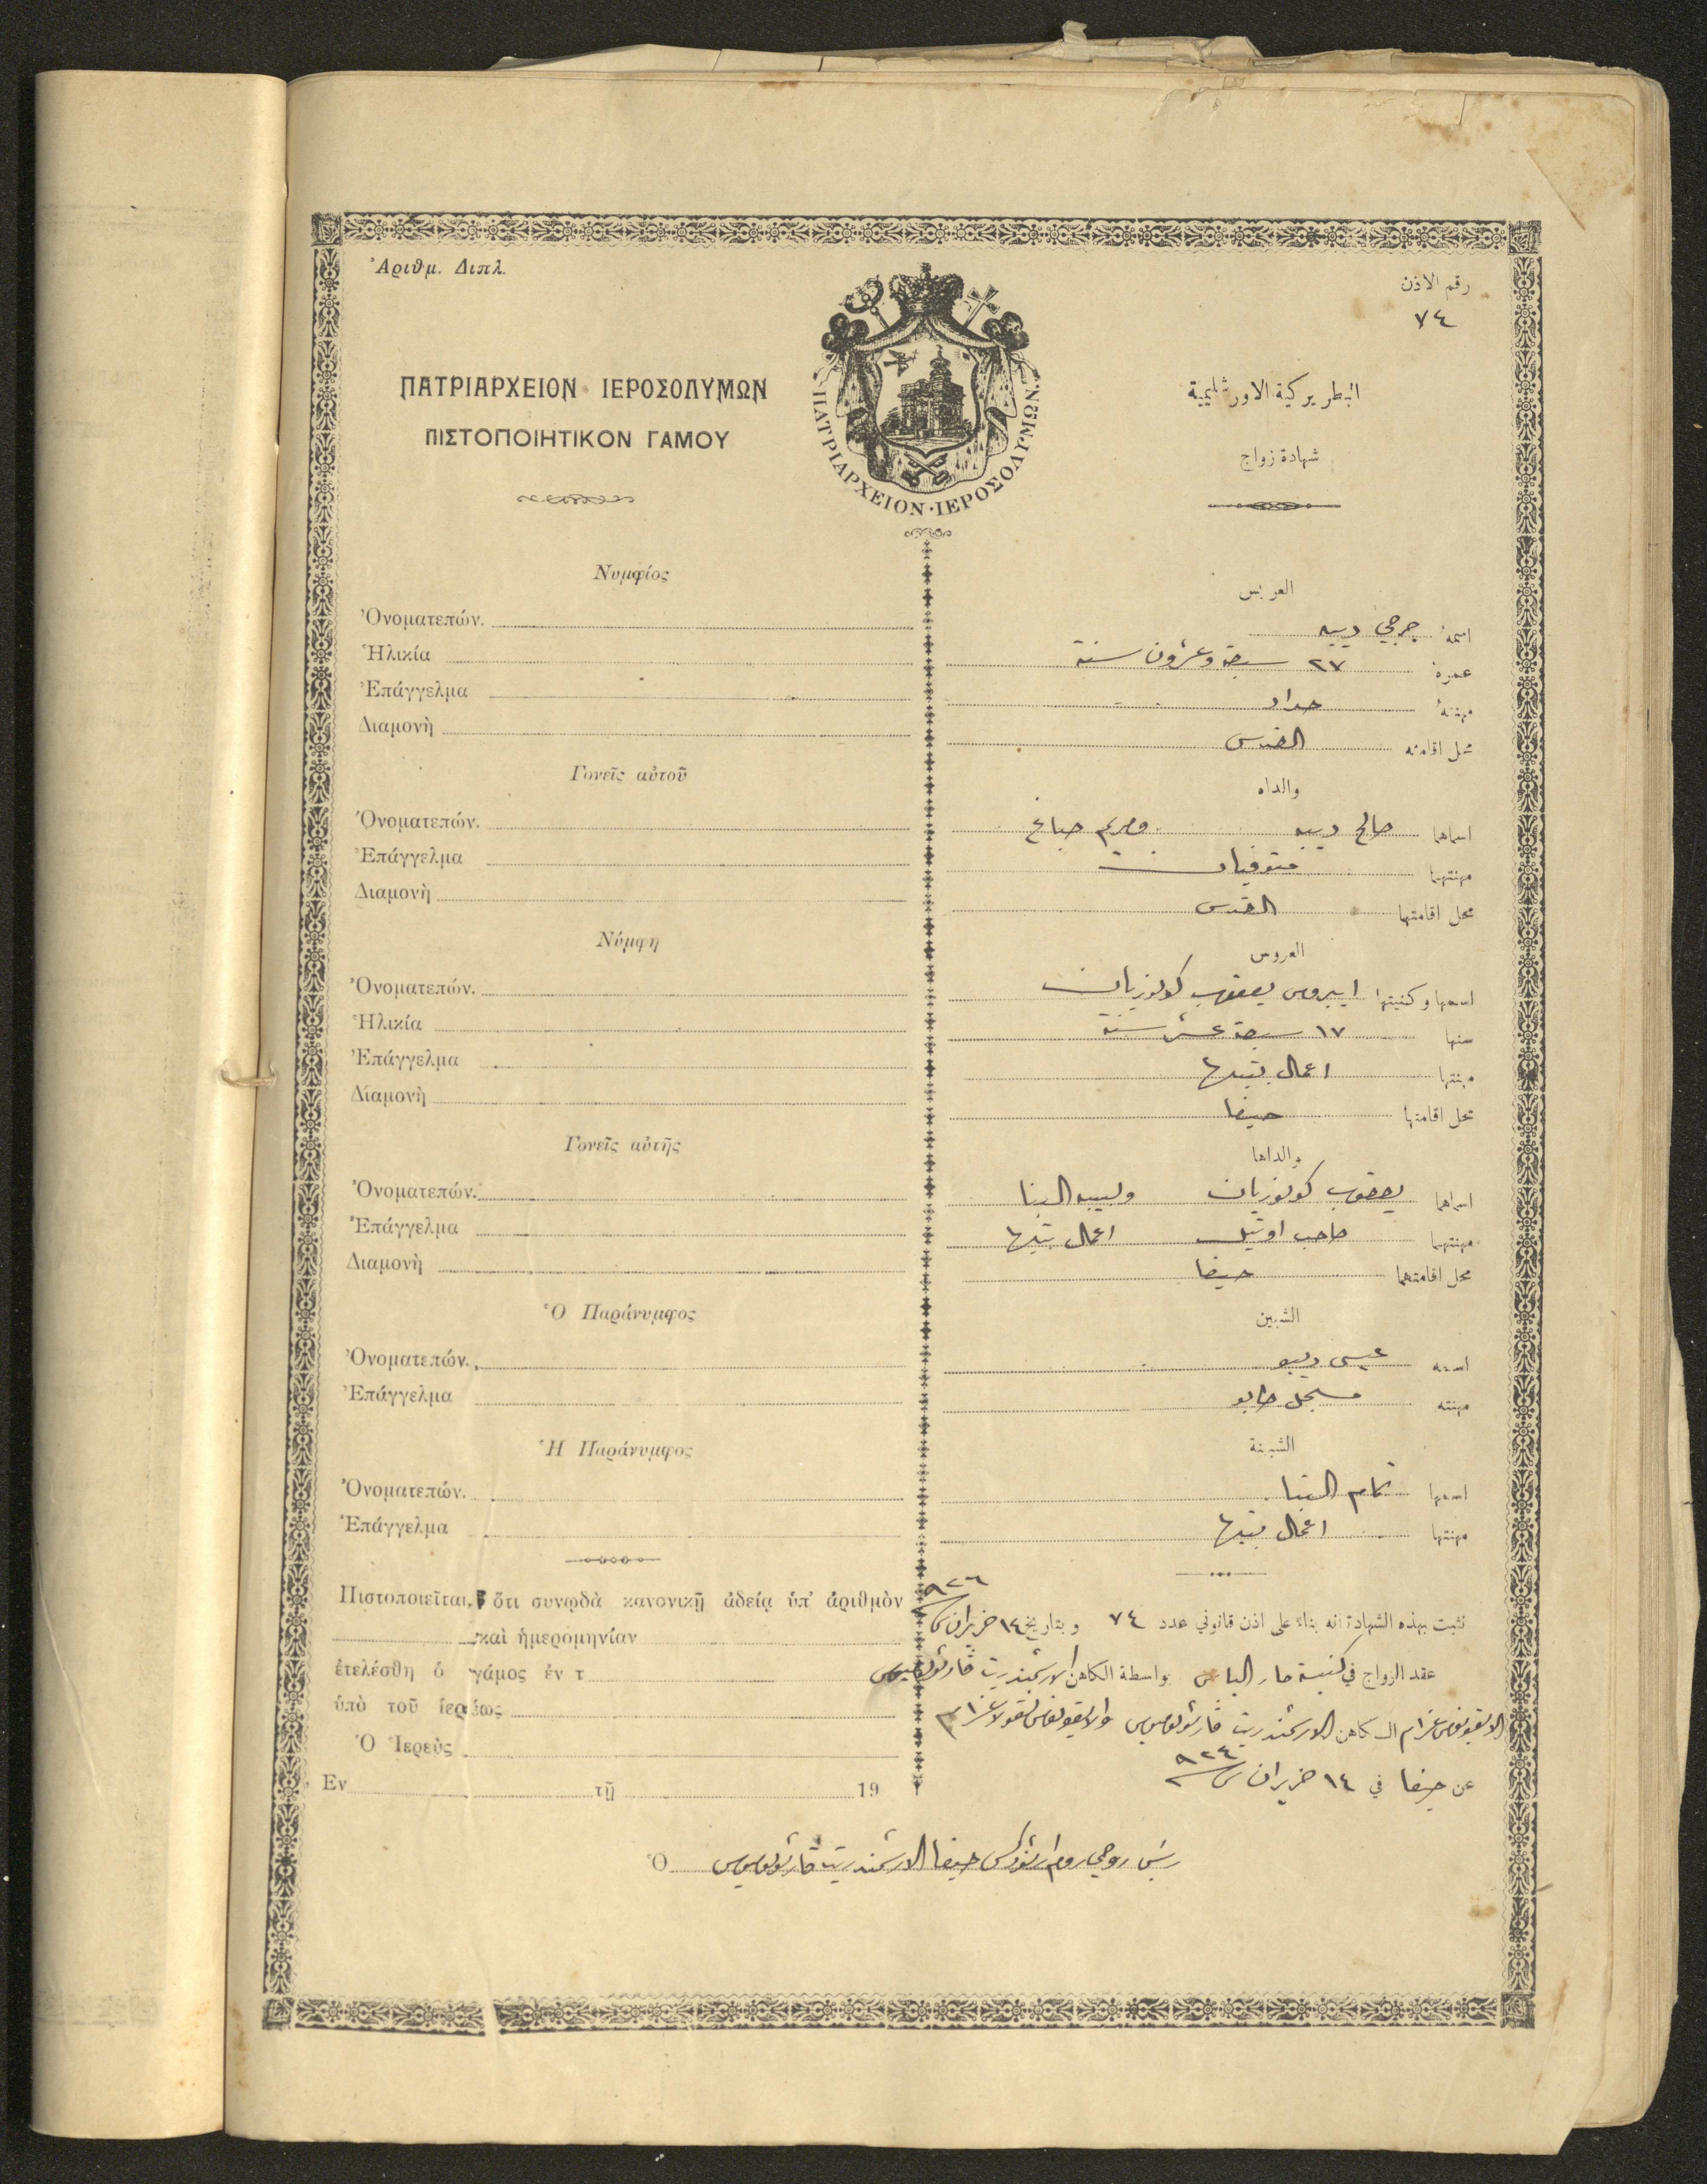 Ἀριθμ. Διπλ.
رقم الاذن
٧٤
ΠΑΤΡΙΑΡΧΕΙΟΝ ΙΕΡΟΣΟΛΥΜΩΝ
ΠΙΣΤΟΠΟΙΗΤΙΚΟΝ ΓΑΜΟΥ
ΠΑΤΡΙΑΡΧΕΙΟΝ·ΙΕΡΟΣΟΛΥΜΩΝ
البطريركية الاورشليمية
شهادة زواج
Νυμφίος
Ὀνοματεπών.
Ἡλικία
Ἐπάγγελμα
Διαμονὴ
Γονεῖς αὐτοῦ
Ὀνοματεπών.
Ἐπάγγελμα
Διαμονὴ
Νύμφη
Ὀνοματεπών.
Ἡλικία
Ἐπάγγελμα
Διαμονὴ
Γονεῖς αὐτῆς
Ὀνοματεπών.
Ἐπάγγελμα
Διαμονὴ
Ὁ Παράνυμφος
Ὀνοματεπών.
Ἐπάγγελμα
Ἡ Παράνυμφος
Ὀνοματεπών.
Ἐπάγγελμα
Πιστοποιεῖται, ὅτι συνῳδὰ κανονικῇ ἀδείᾳ ὑπ' ἀριθμὸν
καὶ ἡμερομηνίαν
ἐτελέσθη ὁ γάμος ἐν τ
ὑπὸ τοῦ ἱερέως
Ὁ Ἱερεὺς
Ἐν τῇ 19
العريس
اسمهُ جرجي ديبه
عمرهُ ٢٧ سبعة وعشرون سنة
مهنتهُ حداد
محل اقامته القدس
والداه
اسماهما صالح ديبه ومريم صباغ
مهنتهما متوفيان
محل اقامتهما القدس
العروس
اسمها وكنيتها يعقوب كولوزيان
سنها ١٧ سبعة عشر سنة
مهنتها اعمال بيتها
محل اقامتها حيفا
والداها
اسماهما يعقوب كولوزيان ولبيبه البنا
مهنتهما صاحب اوتيل اعمال بيتها
محل اقامتهما حيفا
الشبين
اسمه عيسى ديبه
مهنته مسجل طابو
الشبينة
اسمها تمام البنا
مهنتها اعمال بيتها
نثبت بهذه الشهادة انه بناء على اذن قانوني عدد ٧٤ وبتاريخ ١٤ حزيران
عقد الزواج في كنيسة مار الياس بواسطة الكاهن الارشمندريت
الكاهن الارشمندريت
عن حيفا في ١٤ حزيران
رئيس روحي روم ارثوذكس حيفا الارشمندريت
Ὁ